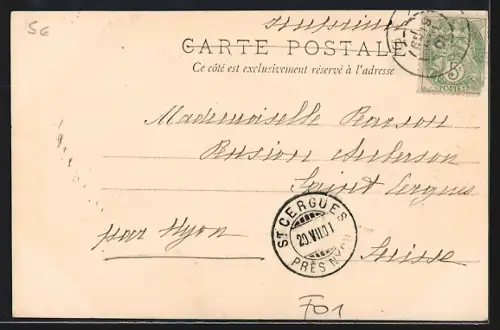 56
Imprimé
CARTE POSTALE
Ce côté est exclusivement réservé à l'adresse
5
POSTES
Mademoiselle Ranson
Pension Auberson
Saint Cergues
par Nyon
Suisse
ST CERGUES
20.VII.01
PRÈS NYON
F01